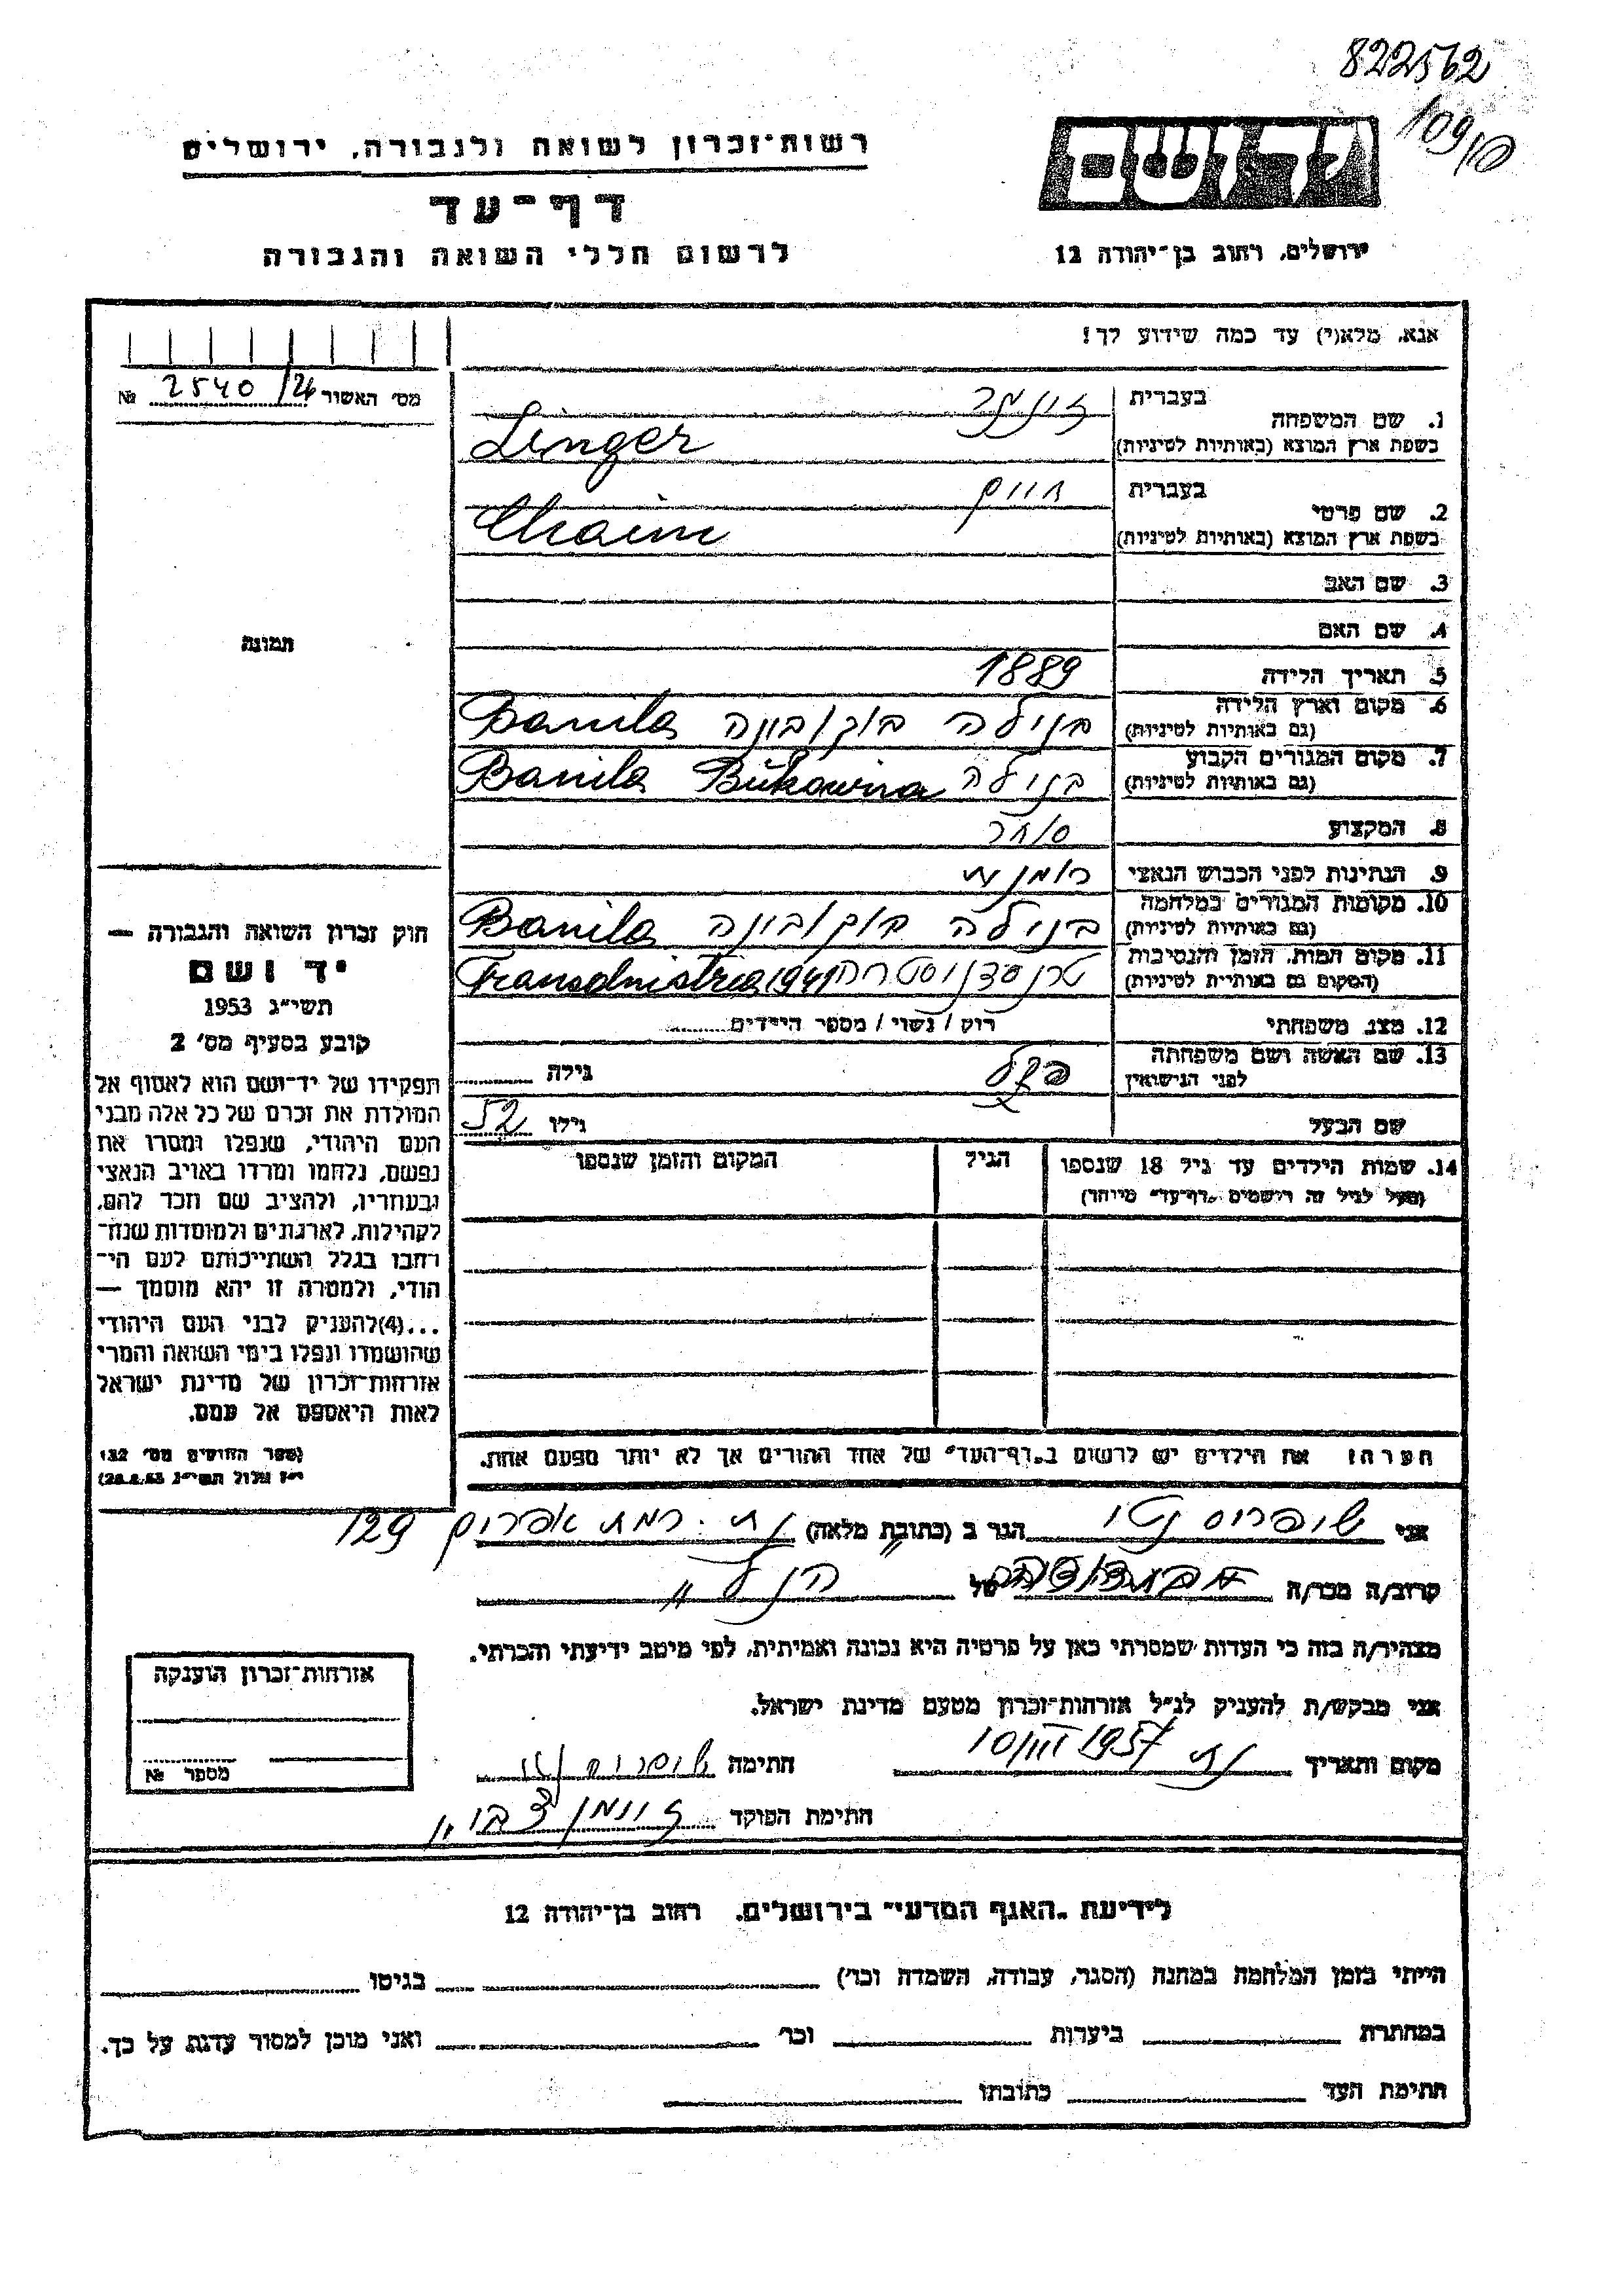 822562
109/
רשות־זכרון לשואה ולגבורה, ירושלים
ידושם
דף־עד
לרשום חללי השואה והגבורה
ירושלים, רחוב בן־יהודה 12
אנא, מלא(י) עד כמה שידוע לך!
מס׳ האשור 2540/26 №
1. שם המשפחה
בעברית זינגר
בשפת ארץ המוצא (באותיות לטיניות) Singer
2. שם פרטי
בעברית חיים
בשפת ארץ המוצא (באותיות לטיניות) Chaim
3. שם האב
4. שם האם
תמונה
5. תאריך הלידה 1889
6. מקום וארץ הלידה (גם באותיות לטיניות) בנילה בוקובינה Banila
7. מקום המגורים הקבוע (גם באותיות לטיניות) בנילה Banila Bukowina
8. המקצוע סוחר
9. הנתינות לפני הכבוש הנאצי
10. מקומות המגורים במלחמה (גם באותיות לטיניות) בנילה בוקובינה Banila
11. מקום המות, הזמן והנסיבות (המקום גם באותיית לטיניות) Transdnistria 1941
12. מצב משפחתי רוק / נשוי / מספר הילדים
13. שם האשה ושם משפחתה לפני הנישואין גילה
שם הבעל גילו 52
14. שמות הילדים עד גיל 18 שנספו הגיל המקום והזמן שנספו
(מעל לגיל זה רושמים „דף־עד״ מיוחד)
חוק זכרון השואה והגבורה —
יד ושם
תשי״ג 1953
קובע בסעיף מס׳ 2
תפקידו של יד־ושם הוא לאסוף אל
המולדת את זכרם של כל אלה מבני
העם היהודי, שנפלו ומסרו את
נפשם, נלחמו ומרדו באויב הנאצי
ובעוזריו, ולהציב שם וזכר להם,
לקהילות, לארגונים ולמוסדות שנח־
רבו בגלל השתייכותם לעם הי־
הודי, ולמטרה זו יהא מוסמך —
...(4)להעניק לבני העם היהודי
שהושמדו ונפלו בימי השואה והמרי
אזרחות־זכרון של מדינת ישראל
לאות היאספם אל עמם.
(ספר החוקים מס׳ 132
י״ז אלול תשי״ג 28.8.53)
הערה: את הילדים יש לרשום ב„דף־העד״ של אחד ההורים אך לא יותר מפעם אחת.
אני הגר ב (כתובת מלאה) נת. רמת אפרים 129
קרוב/ה מכר/ה של הנ״ל
מצהיר/ה בזה כי העדות שמסרתי כאן על פרטיה היא נכונה ואמיתית, לפי מיטב ידיעתי והכרתי.
אני מבקש/ת להעניק לנ״ל אזרחות־זכרון מטעם מדינת ישראל.
מקום ותאריך נת 10/III 1957 חתימה
חתימת הפוקד
אזרחות־זכרון הוענקה
מספר №
לידיעת „האגף המדעי״ בירושלים, רחוב בן־יהודה 12
הייתי בזמן המלחמה במחנה (הסגר, עבודה, השמדה וכו׳) בגיטו
במחתרת ביערות וכו׳ ואני מוכן למסור עדות על כך.
חתימת העד כתובתו